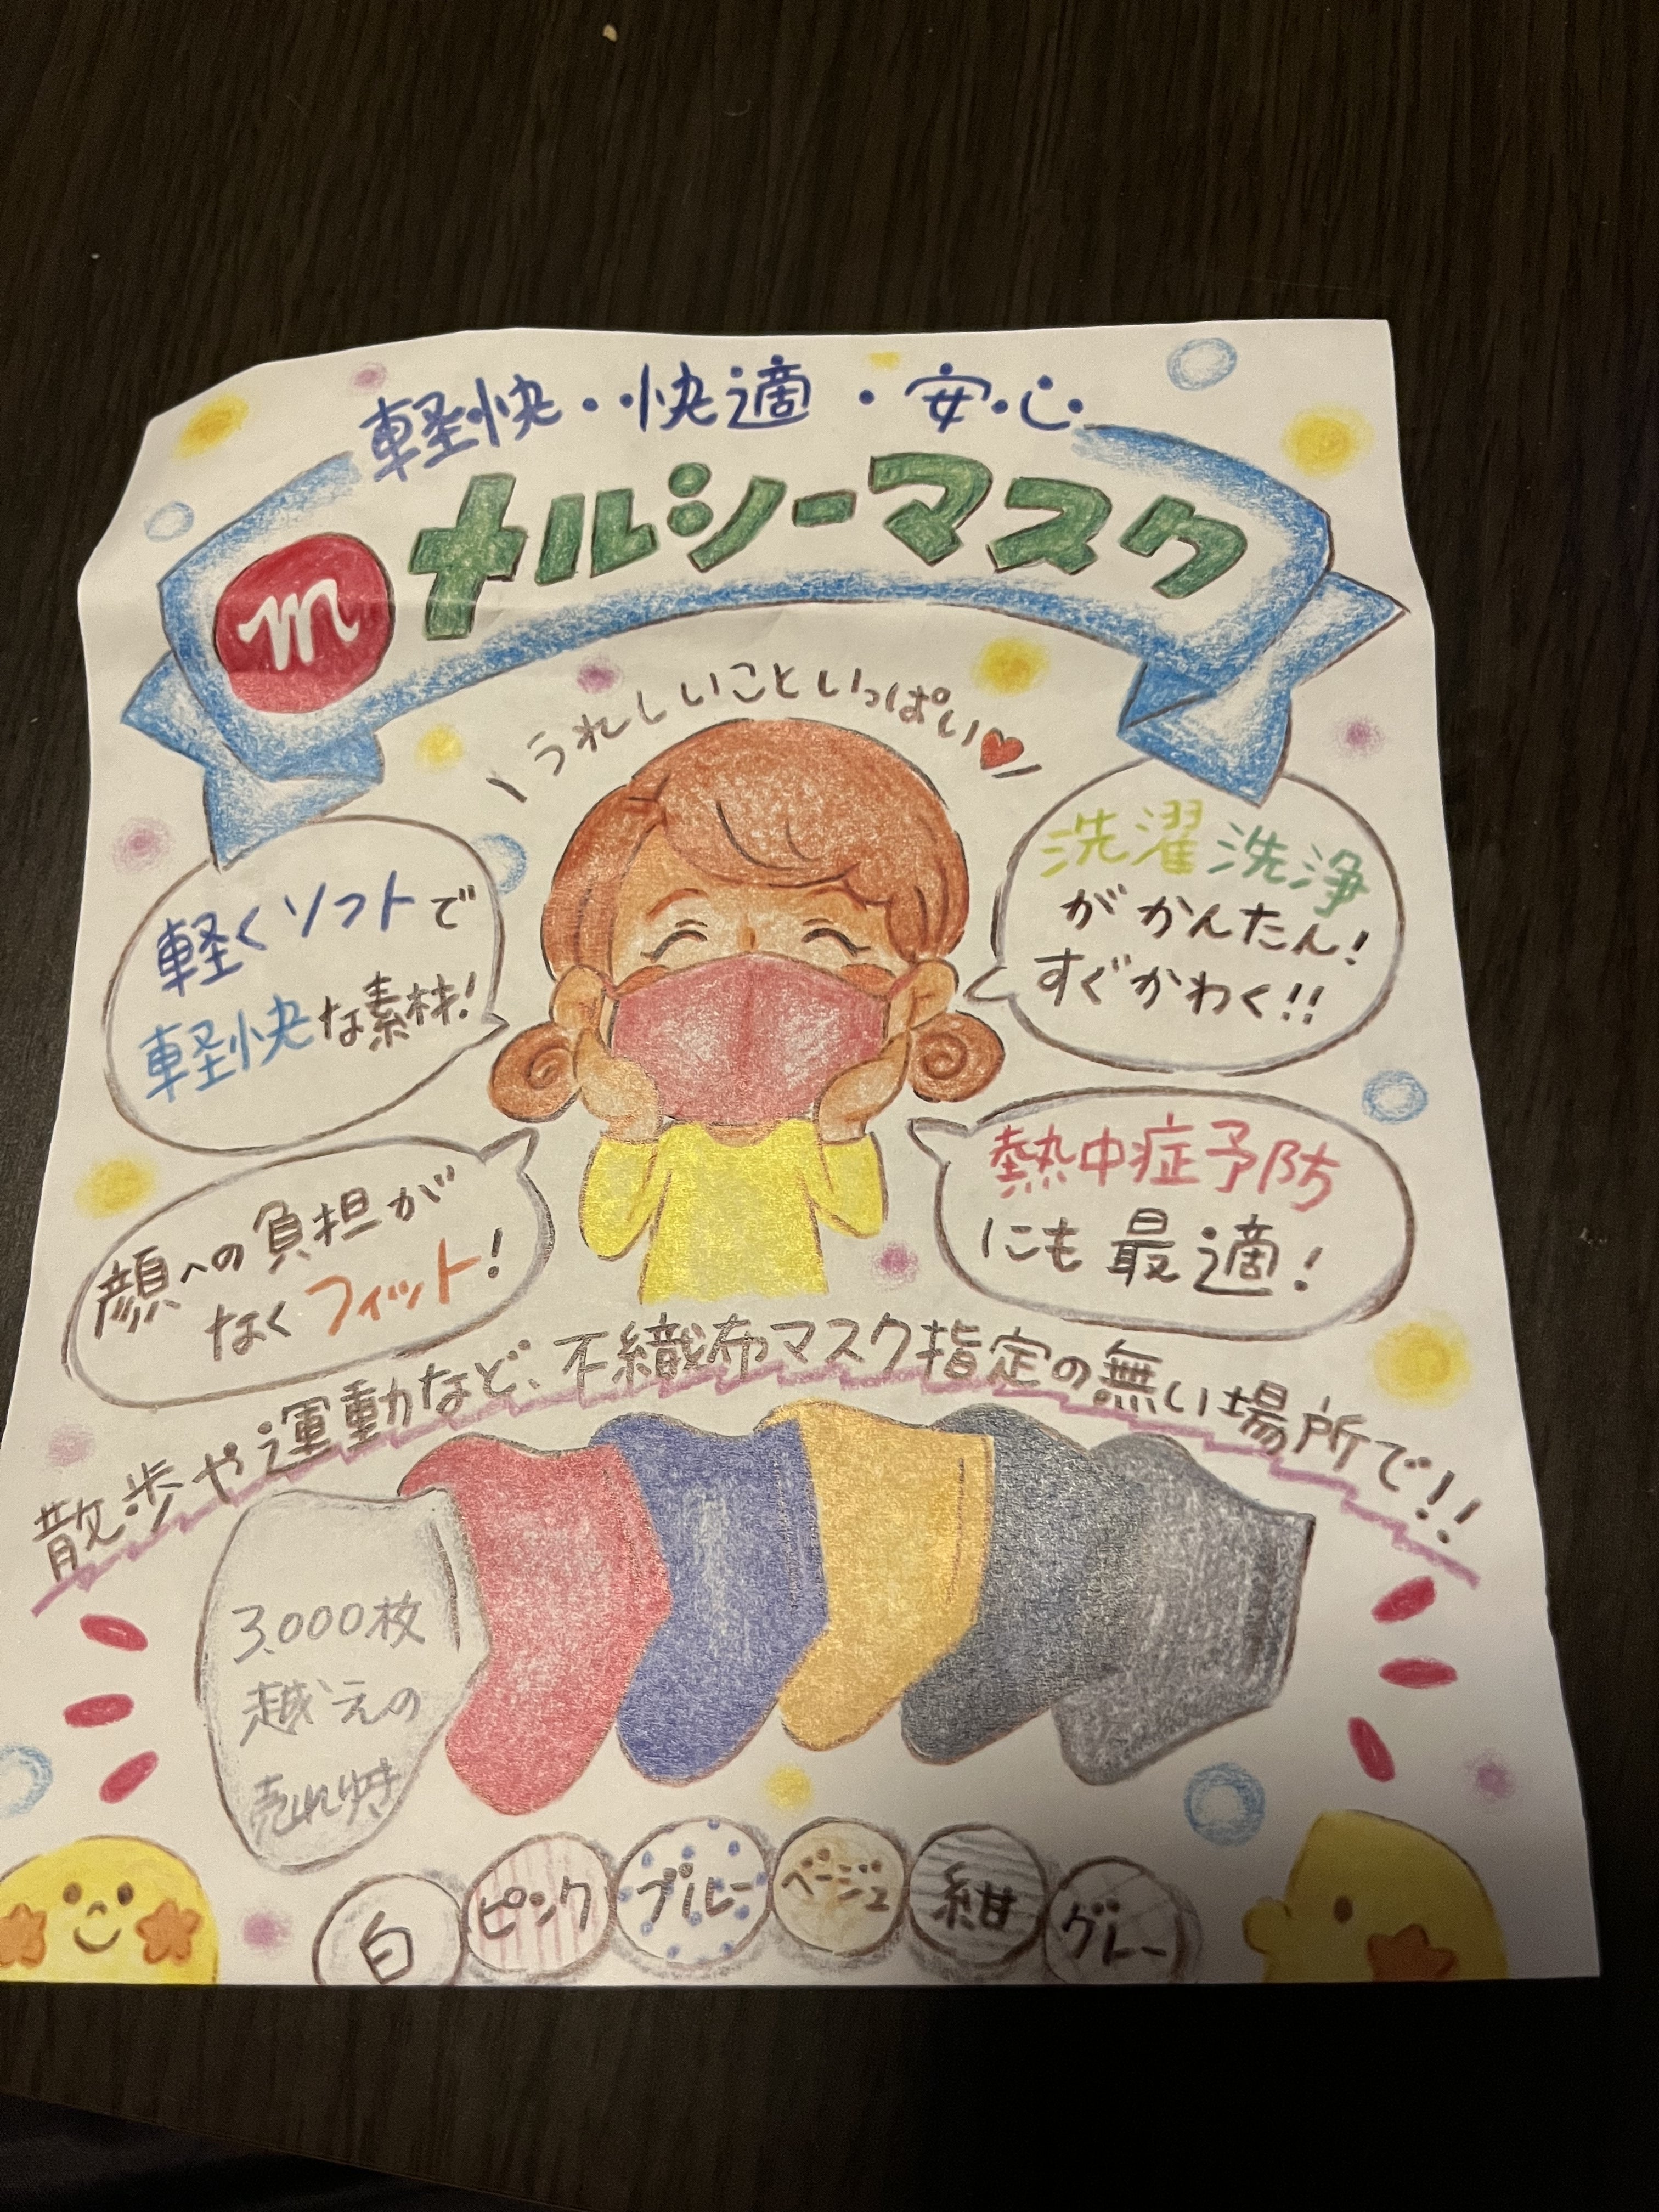 軽快・快適・安心
m
メルシーマスク
うれしいこといっぱい
軽くソフトで
軽快な素材!
洗濯洗浄
がかんたん!
すぐかわく!!
顔への負担が
なくフィット!
熱中症予防
にも最適!
散歩や運動など、不織布マスク指定の無い場所で!!
3,000枚
越えの
売れゆき
白
ピンク
ブルー
ベージュ
紺
グレー